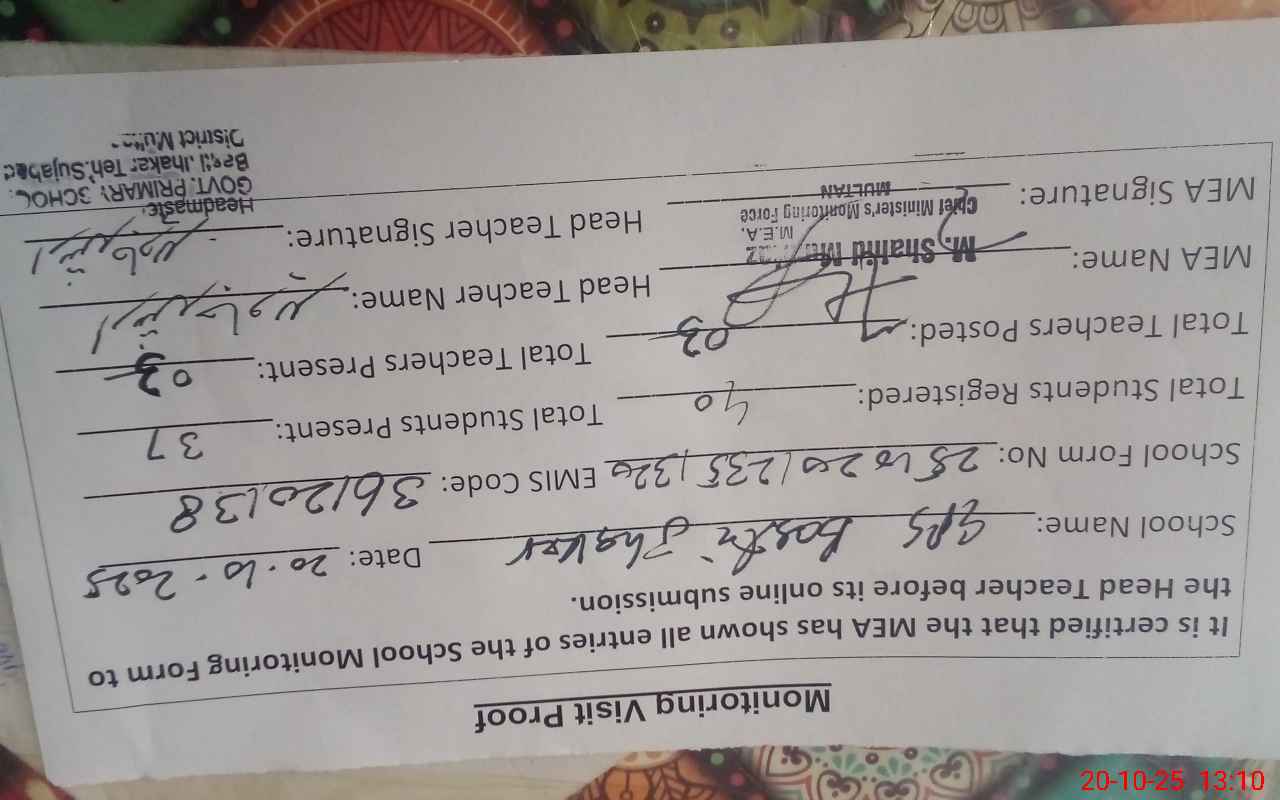 Monitoring Visit Proof
It is certified that the MEA has shown all entries of the School Monitoring Form to
the Head Teacher before its online submission.
School Name: GPS Basti Jhaker Date: 20-10-2025
School Form No: EMIS Code: 36120138
Total Students Registered: 40 Total Students Present: 37
Total Teachers Posted: 03 Total Teachers Present: 03
MEA Name: M. Shahid Head Teacher Name:
M.E.A.
Chief Minister's Monitoring Force
MULTAN
MEA Signature: Head Teacher Signature:
Headmaste
GOVT. PRIMARY SCHOOL
Jhakar Teh. Sujabad
District
20-10-25 13:10